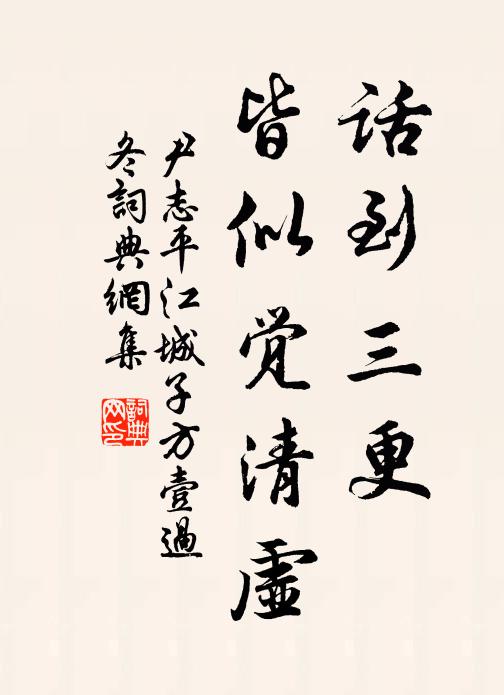 话到三更
皆似觉清虚
尹志平江城子方壶过
冬词典网集
詞典網印